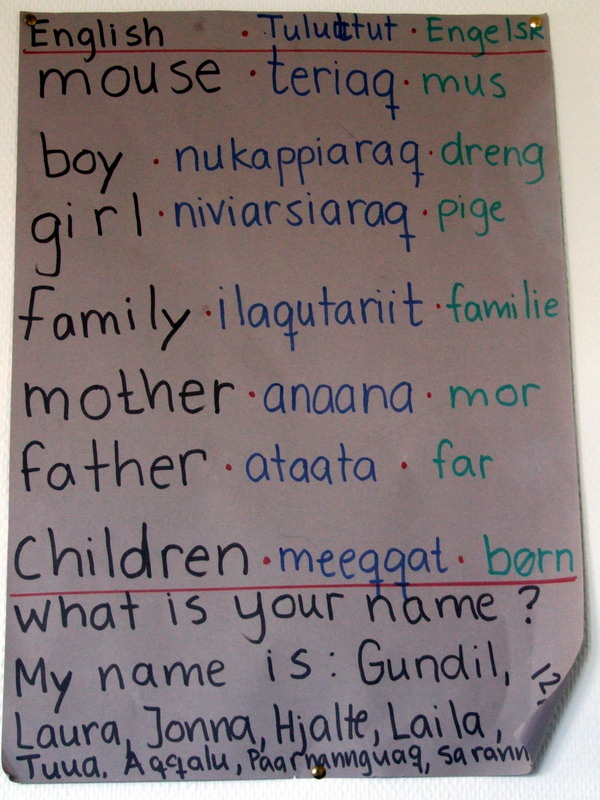 English · Tuluttut · Engelsk
mouse · teriaq · mus
boy · nukappiaraq · dreng
girl · niviarsiaraq · pige
family · ilaqutariit · familie
mother · anaana · mor
father · ataata · far
Children · meeqqat · børn
what is your name ?
My name is : Gundil,
Laura, Jonna, Hjalte, Laila,
Tuua. Aqqalu, Paarnannguaq, Sarann